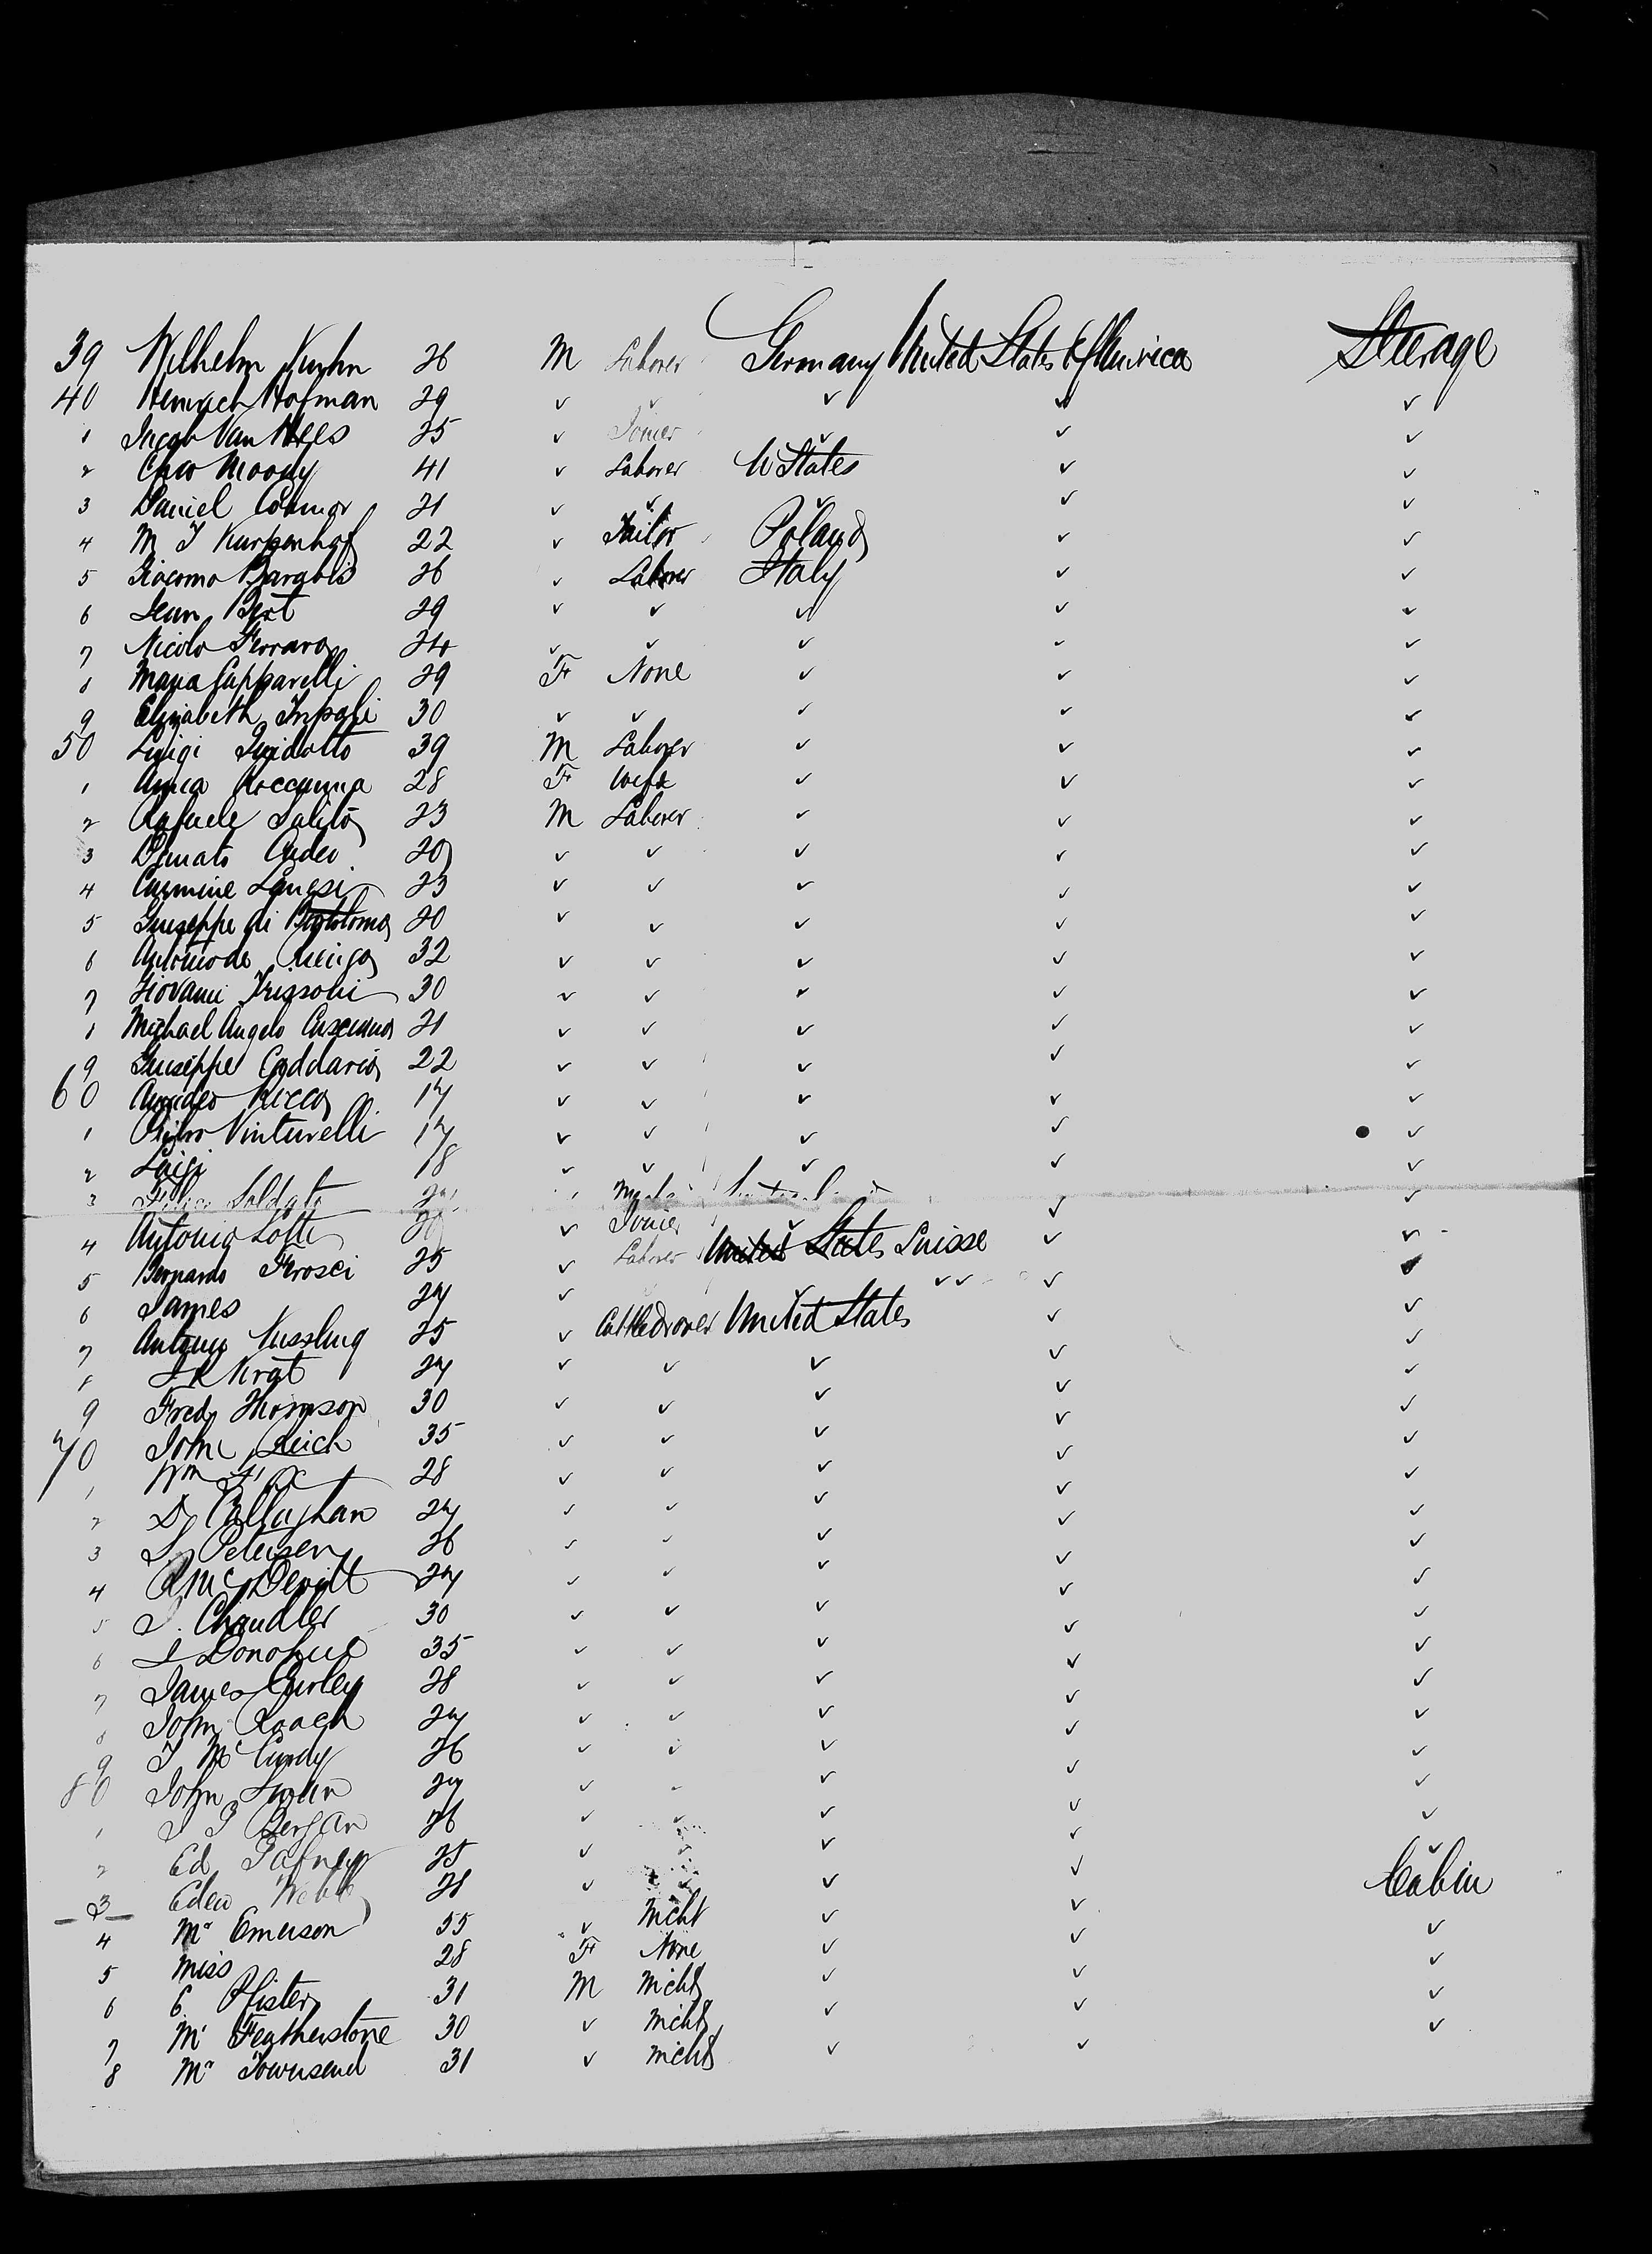 39 Wilhelm Kuhn 26 M Laborer Germany United States of America Steerage
40 Heinrich Hofman 29 ✓ ✓ ✓ ✓ ✓
1 Jacob Van Hees 25 ✓ Joiner ✓ ✓ ✓
2 Moody 41 ✓ Laborer U States ✓ ✓
3 Daniel Connor 21 ✓ ✓ ✓ ✓ ✓
4 M J 22 ✓ Tailor Poland ✓ ✓
5 Giacomo 26 ✓ Laborer Italy ✓ ✓
6 Jean 29 ✓ ✓ ✓ ✓ ✓
7 Nicolo Ferraro 24 ✓ ✓ ✓ ✓ ✓
8 Maria Capparelli 29 F None ✓ ✓ ✓
9 Elizabeth 30 ✓ ✓ ✓ ✓ ✓
50 Luigi Guidotto 39 M Laborer ✓ ✓ ✓
1 Anna 28 F Wife ✓ ✓ ✓
2 Rafaele Salito 23 M Laborer ✓ ✓ ✓
3 Donato 20 ✓ ✓ ✓ ✓ ✓
4 Carmine 23 ✓ ✓ ✓ ✓ ✓
5 Giuseppe di Bortolomo 20 ✓ ✓ ✓ ✓ ✓
6 32 ✓ ✓ ✓ ✓ ✓
7 Giovanni 30 ✓ ✓ ✓ ✓ ✓
8 Michael Angelo 21 ✓ ✓ ✓ ✓ ✓
9 Giuseppe Caddario 22 ✓ ✓ ✓ ✓ ✓
60 Amideo Ricco 17 ✓ ✓ ✓ ✓ ✓
1 Vinturelli 17 ✓ ✓ ✓ ✓ ✓
2 Luigi 18 ✓ ✓ ✓ ✓ ✓
3 Soldato
4 Antonio Lotti ✓ Joiner ✓ ✓ ✓
5 Leonardo Frosci 25 ✓ Laborer United States Suisse ✓ ✓
6 James 27 ✓ ✓ ✓ ✓ ✓
7 Antony 25 ✓ Cattledrover United States ✓ ✓
8 27 ✓ ✓ ✓ ✓ ✓
9 Fred Thomson 30 ✓ ✓ ✓ ✓ ✓
70 John Leich 35 ✓ ✓ ✓ ✓ ✓
1 Wm 28 ✓ ✓ ✓ ✓ ✓
2 D Callaghan 27 ✓ ✓ ✓ ✓ ✓
3 Petersen 26 ✓ ✓ ✓ ✓ ✓
4 McDevitt 27 ✓ ✓ ✓ ✓ ✓
5 J. Chandler 30 ✓ ✓ ✓ ✓ ✓
6 J Donohue 35 ✓ ✓ ✓ ✓ ✓
7 James Curley 28 ✓ ✓ ✓ ✓ ✓
8 John Roach 27 ✓ ✓ ✓ ✓ ✓
9 J McCurdy 26 ✓ ✓ ✓ ✓ ✓
80 John Swan 27 ✓ ✓ ✓ ✓ ✓
1 Bergan 26 ✓ ✓ ✓ ✓ ✓
2 Ed Gafney 25 ✓ ✓ ✓ ✓ ✓
3 Eden Webb 28 ✓ ✓ ✓ ✓ Cabin
4 Mr Emerson 55 ✓ Mcht ✓ ✓ ✓
5 Miss 28 F None ✓ ✓ ✓
6 C Pfister 31 M Mcht ✓ ✓ ✓
7 Mr Featherstone 30 ✓ Mcht ✓ ✓ ✓
8 Mr Townsend 31 ✓ Mcht ✓ ✓